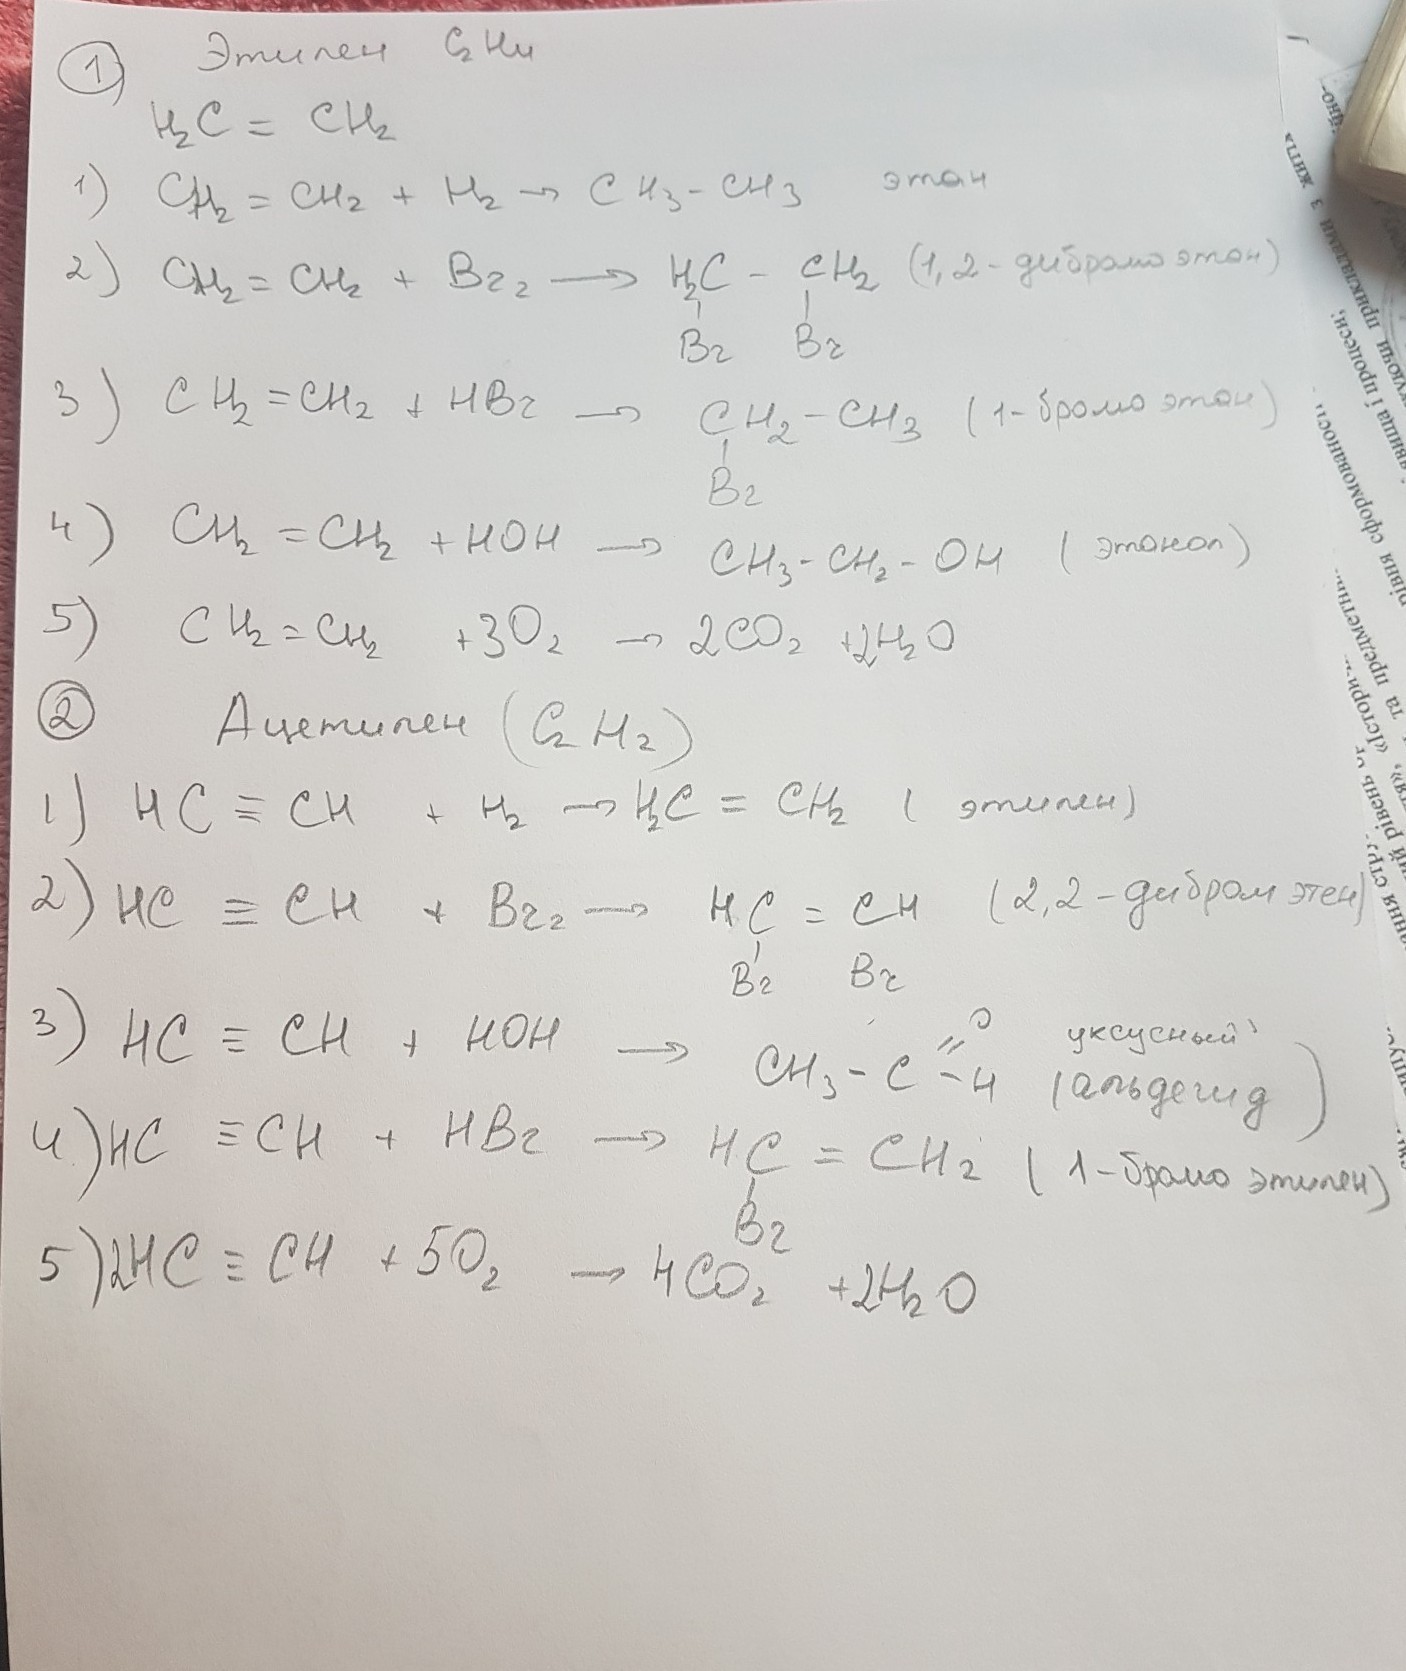 ① Этилен C₂H₄
H₂C = CH₂
1) CH₂ = CH₂ + H₂ → CH₃ - CH₃ этан
2) CH₂ = CH₂ + Br₂ → H₂C - CH₂ (1,2 - дибромо этан)
Br Br
3) CH₂ = CH₂ + HBr → CH₂ - CH₃ (1- бромо этан)
Br
4) CH₂ = CH₂ + HOH → CH₃ - CH₂ - OH (этанол)
5) CH₂ = CH₂ + 3O₂ → 2CO₂ + 2H₂O
② Ацетилен (C₂H₂)
1) HC ≡ CH + H₂ → H₂C = CH₂ (этилен)
2) HC ≡ CH + Br₂ → HC = CH (2,2 - дибром этен)
Br Br
3) HC ≡ CH + HOH → CH₃ - C = O - H (уксусный альдегид)
4) HC ≡ CH + HBr → HC = CH₂ (1 - бромо этилен)
Br
5) 2HC ≡ CH + 5O₂ → 4CO₂ + 2H₂O
з жит
прикладами
явища і процеси,
рівня сформованос
та предметни
«Істори
рівень